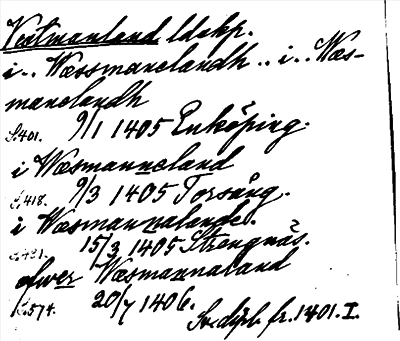 Västmanland ldskp.
i.. Wæssmanelandh.. i.. Wæs-
manelandh
S.401. 9/1 1405 Enköping.
i Wæsmanneland
S.418. 9/3 1405 Torsång.
i Wæsmannalande.
S.421. 15/3 1405 Strengnäs.
ofwer Wæsmannaland
S.574. 20/7 1406.
Sv. dipl. fr. 1401. I.